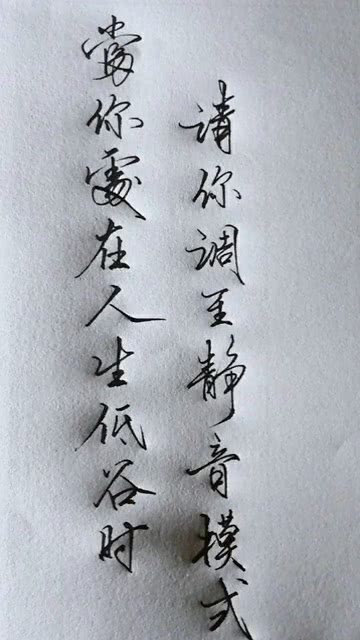 當你處在人生低谷时
请你调至静音模式